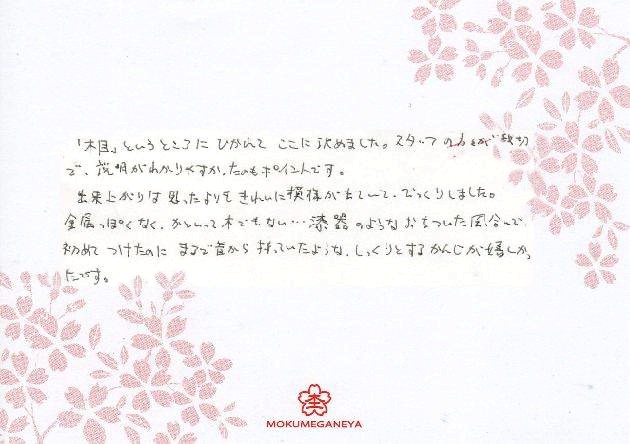 「木目」というところにひかれて ここに決めました。スタッフの方々が親切
で、説明がわかりやすかったのもポイントです。
出来上がりは思ったよりもきれいに模様が出ていて、びっくりしました。
金属っぽくなく、かといって木でもない…漆器のようなおちついた風合いで
初めてつけたのに まるで昔から持っていたような、しっくりとするかんじが嬉しかっ
たです。
杢
MOKUMEGANEYA